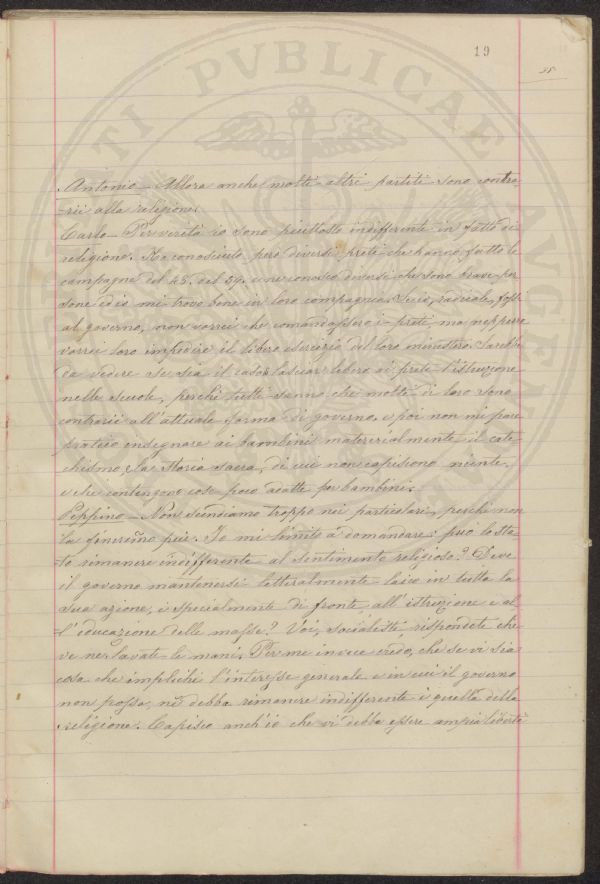 19
TI PVBLICAE AVGEN
Antonio - Allora anche molti altri partiti sono contra-
rii alla religione.
Carlo - Per verità io sono piuttosto indifferente in fatto di
religione. Ho conosciuto però diversi preti che hanno fatto le
campagne del 48. del 59. e ne conosco diversi che sono brave per
sone ed io mi trovo bene in loro compagnia. Se io, radicale, fossi
al governo, non vorrei che comandassero i preti, ma neppure
vorrei loro impedire il libero esercizio del loro ministero. Sarebbe
da vedere se sia il caso lasciar libero ai preti l'istruzione
nelle scuole, perchè tutti sanno che molti di loro sono
contrarii all'attuale forma di governo. e poi non mi pare
pratico insegnare ai bambini materialmente il cate
chismo, e la Storia Sacra, di cui non capiscono niente,
e che contengono cose poco adatte per bambini.
Peppino - Non scendiamo troppo nei particolari, perchè non
la finiremo più. Io mi limito a domandare: può lo Sta-
to rimanere indifferente al sentimento religioso? Deve
il governo mantenersi letteralmente laico in tutta la
sua azione, e specialmente di fronte, all'istruzione e al
l'educazione delle masse? Voi, socialisti, rispondete che
ve ne lavate le mani. Per me invece credo, che se vi sia
cosa che implichi l'interesse generale e in cui il governo
non possa, nè debba rimanere indifferente è quella della
religione. Capisco anch'io che vi debba essere ampia libertà